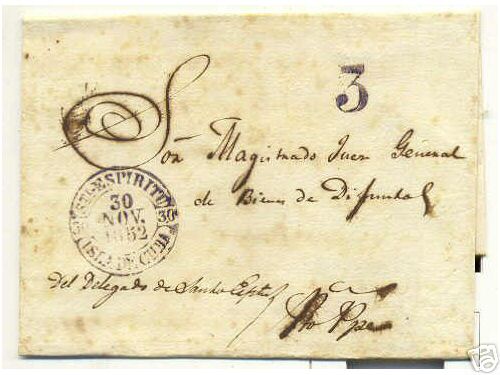 3
Sôr Magistrado Juez General
de Bienes de Difuntos
STO. ESPIRITU
30
NOV.
1852
30
ISLA DE CUBA
Del Delegado de Santo Espíritu
Pto. Ppe.
ebay